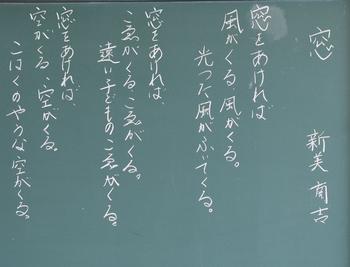 窓
新美南吉
窓をあければ
風がくる、風がくる。
光つた風がふいてくる。
窓をあければ、
こゑがくる、こゑがくる。
遠い子どものこゑがくる。
窓をあければ、
空がくる、空がくる。
こはくのやうな空がくる。